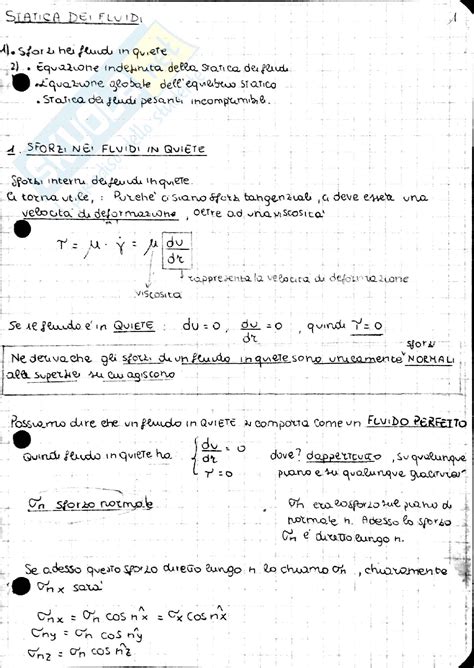 STATICA DEI FLUIDI
1
1) • Sforzi nei fluidi in quiete
2) • Equazione indefinita della statica dei fluidi
• Equazione globale dell'equilibrio statico
• Statica dei fluidi pesanti incomprimibili.
1. SFORZI NEI FLUIDI IN QUIETE
Sforzi interni dei fluidi in quiete.
Ci torna utile, : Purché ci siano sforzi tangenziali, ci deve essere una
velocità di deformazione, oltre ad una viscosità
τ = μ · γ̇ = μ dv/dr
rappresenta la velocità di deformazione
viscosità
Se il fluido è in QUIETE : dv = 0, dv/dr = 0, quindi τ = 0
Ne deriva che gli sforzi di un fluido in quiete sono unicamente sforzi NORMALI
alle superfici su cui agiscono
Possiamo dire che un fluido in QUIETE si comporta come un FLUIDO PERFETTO
Quindi fluido in quiete ha { dv/dr = 0 dove? dappertutto, su qualunque
τ = 0 piano e su qualunque giacitura
σn sforzo normale
σn era lo sforzo sul piano di
normale n. Adesso lo sforzo
σn è diretto lungo n.
Se adesso questo sforzo diretto lungo n lo chiamo σn, chiaramente
σnx sarà
σnx = σn cos n̂x = σx cos n̂x
σny = σn cos n̂y
σnz = σn cos n̂z